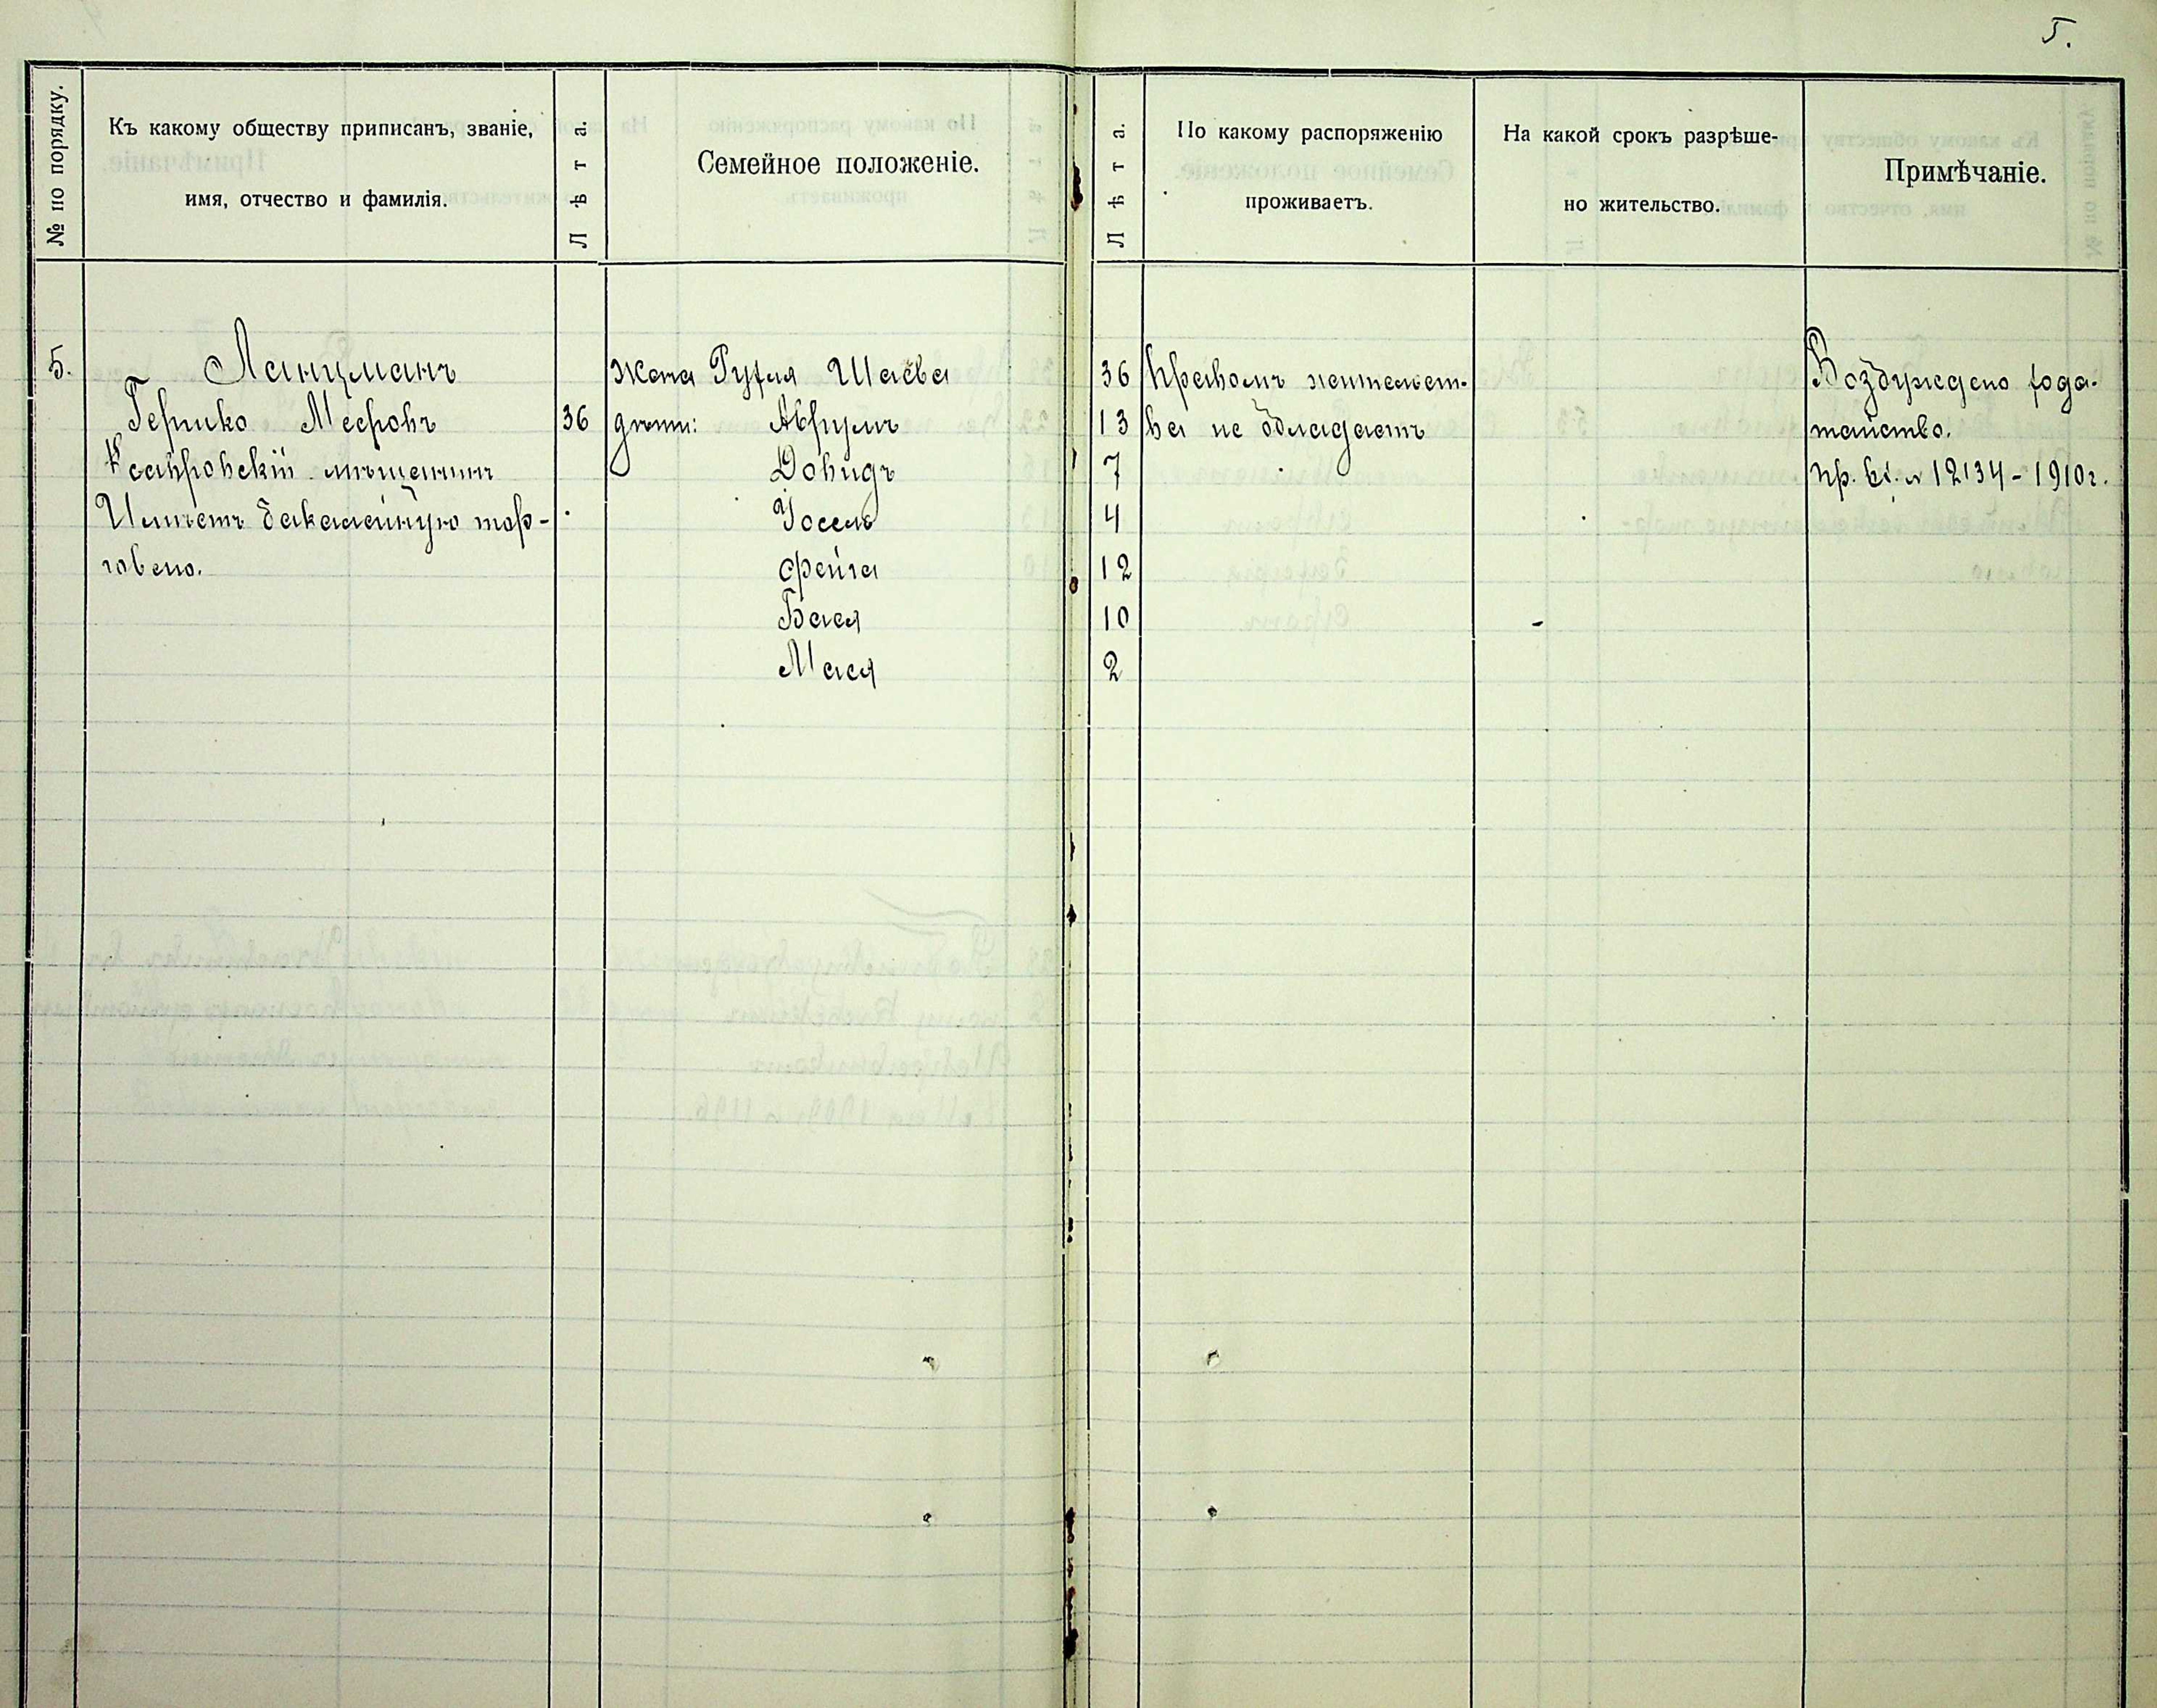 5.
№ по порядку.
Къ какому обществу приписанъ, званіе,
имя, отчество и фамилія.
Лѣта.
Семейное положеніе.
Лѣта.
По какому распоряженію
проживаетъ.
На какой срокъ разрѣше-
но жительство.
Примѣчаніе.
5.
Ланцманъ
Гершко Мееровъ
мѣщанинъ
Имѣетъ бакалейную тор-
говлю.
36
жена Руфля Шаева
дѣти: Аврумъ
Довидъ
Іосель
Фейга
Бася
Мася
36
13
7
4
12
10
2
Правомъ жительст-
ва не обладаетъ
Возбуждено хода-
тайство.
№ 12134-1910г.